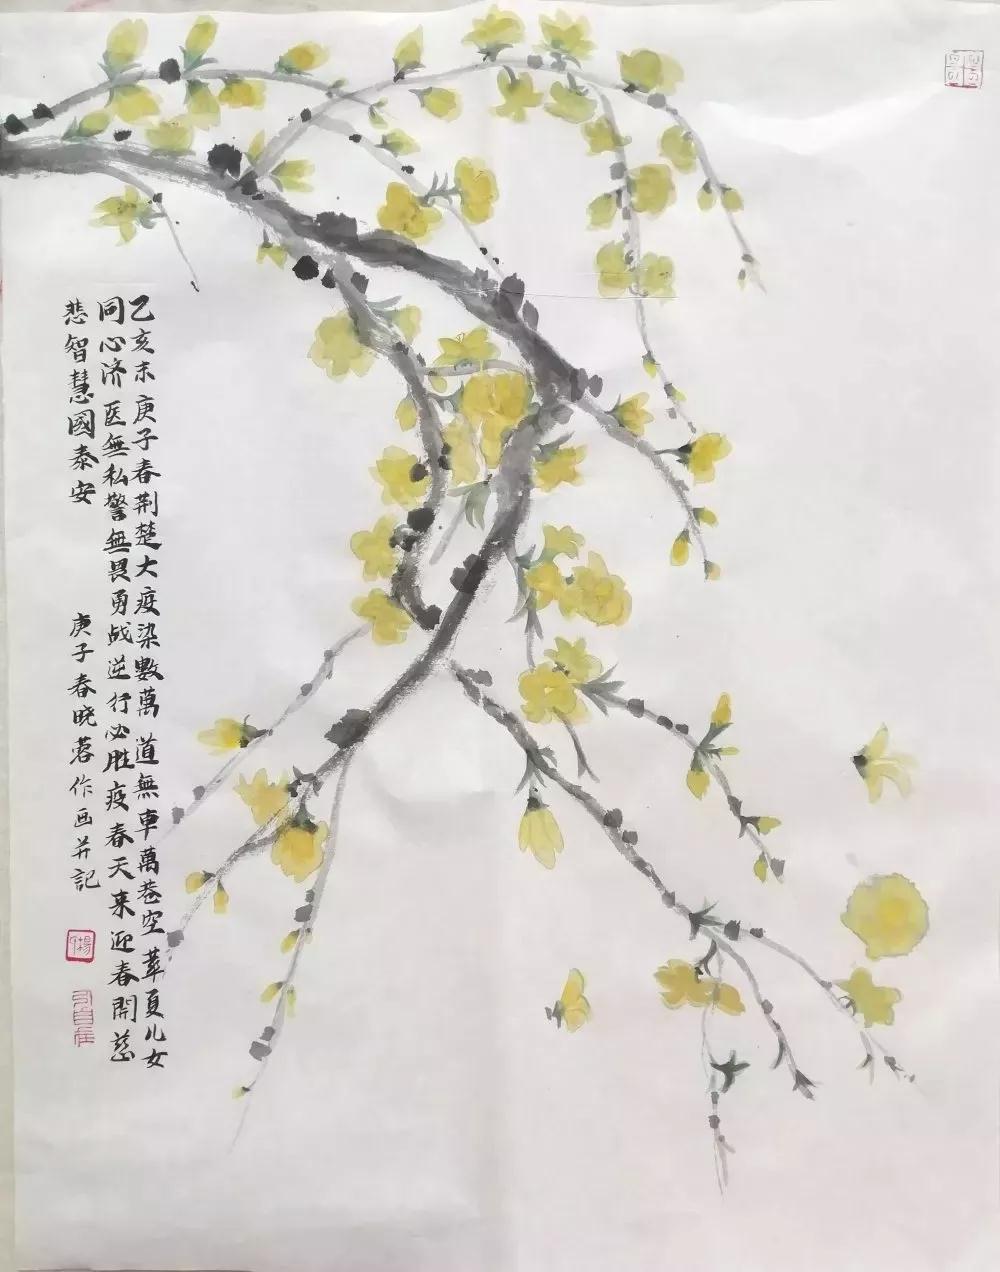 乙亥末庚子春荆楚大疫染數萬道無車萬巷空華夏儿女
同心济医無私警無畏勇战逆行必胜疫春天来迎春開慈
悲智慧國泰安
庚子春晓蓉作画并記